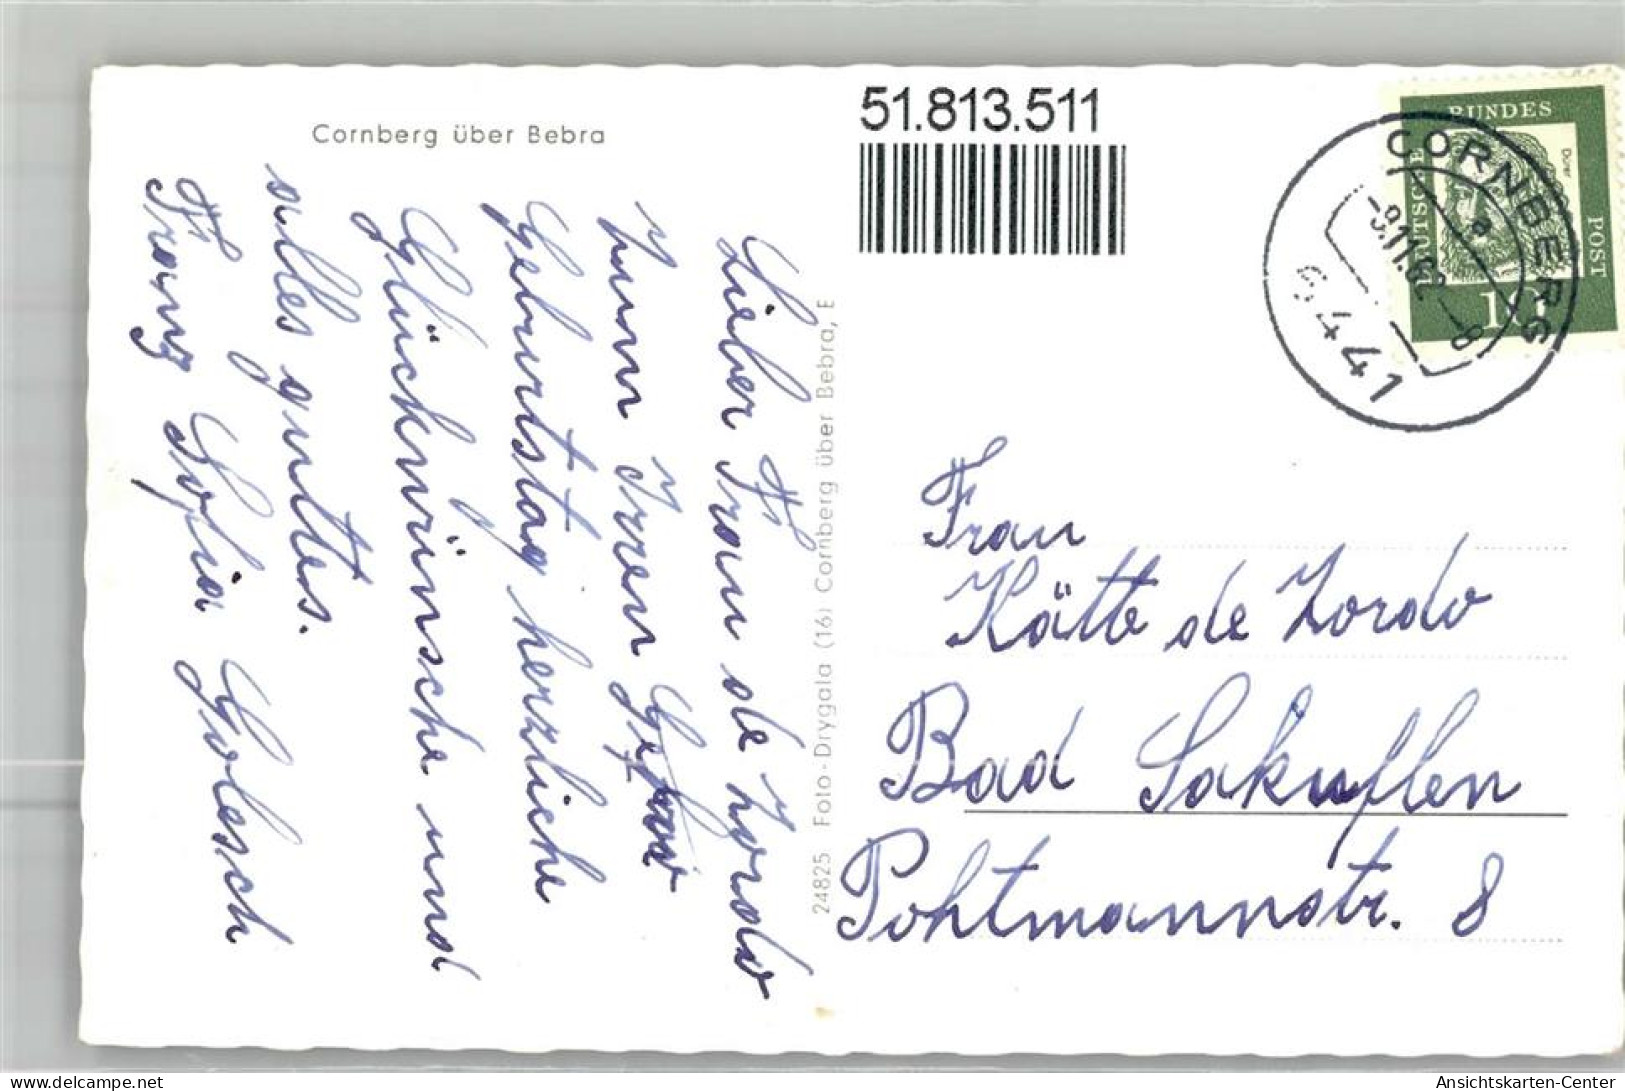 Cornberg über Bebra
51.813.511
BUNDES
DEUTSCHE
POST
Dürer
10
CORNBERG
a
-9.11.62-8
6441
Lieber Frau de Zordo
Zum Iren
Geburtstag herzliche
Glückwünsche und
alles gutes.
Franz Sofia Golesch
24825 Foto-Drygala (16) Cornberg über Bebra, E
Frau
Kätte de Zordo
Bad Sakuflen
Pohtmannstr. 8
Ansichtskarten-Center